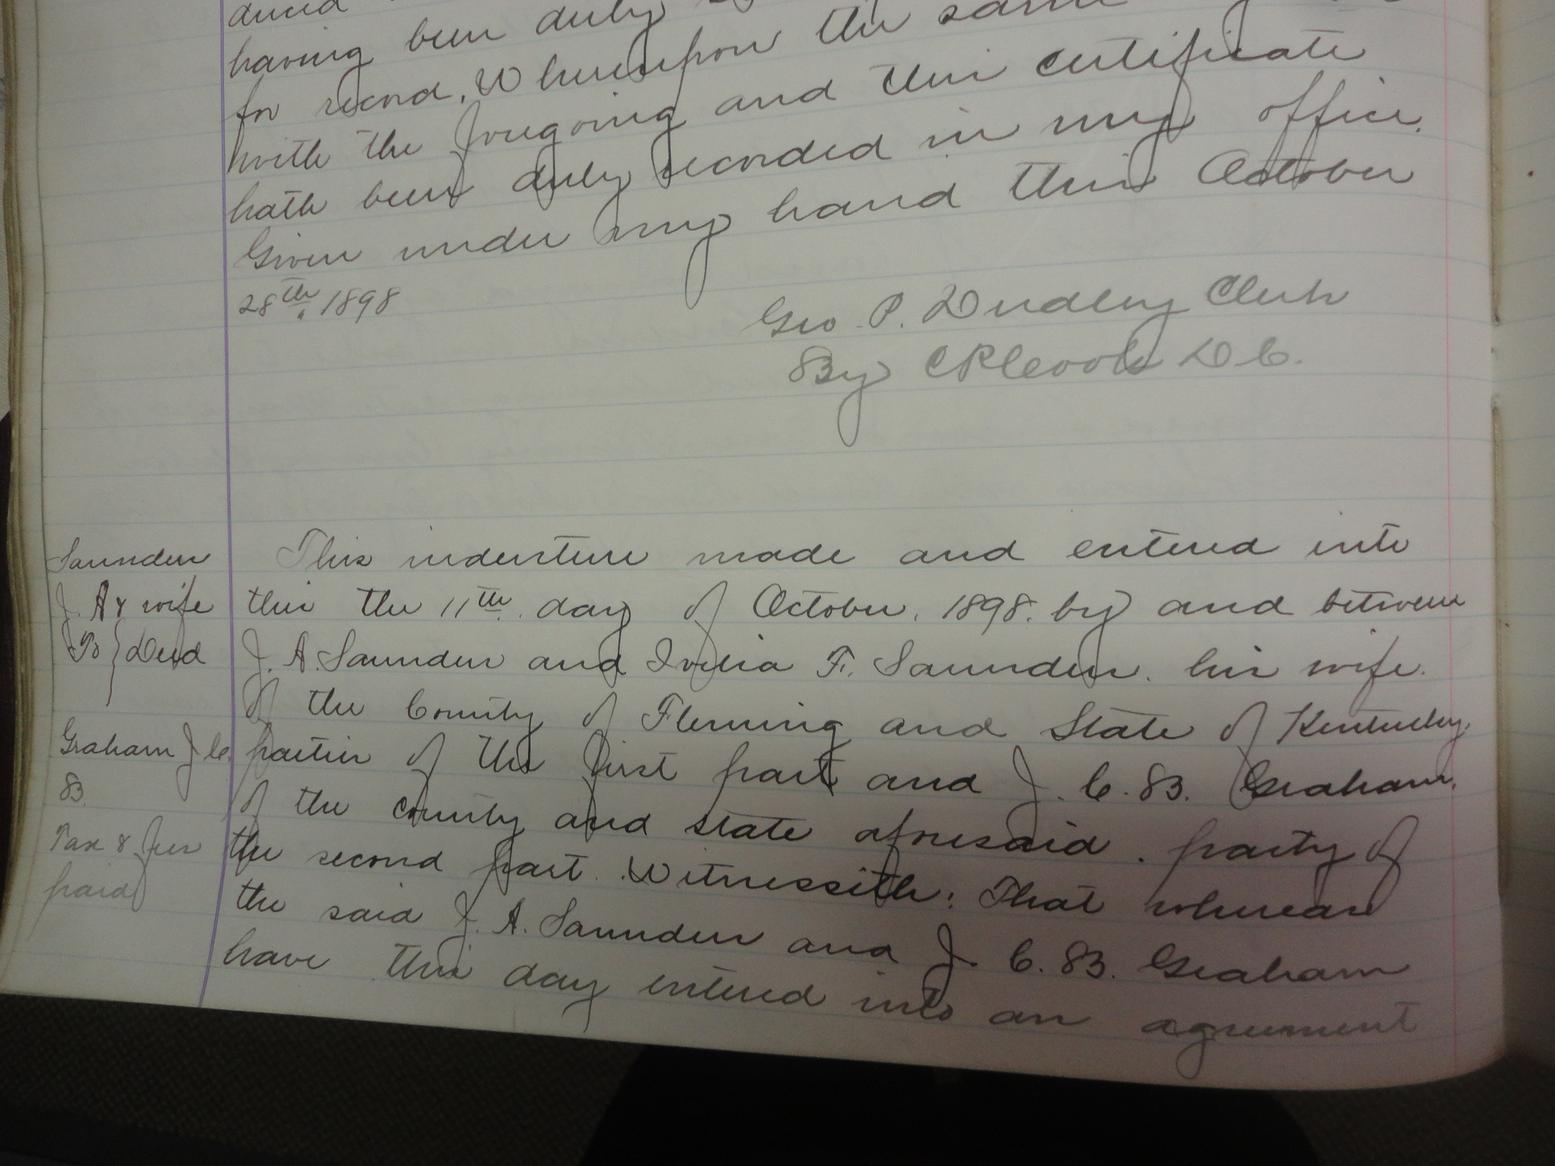 having been duly
for record, Whereupon the same
with the foregoing and this certificate
hath been duly recorded in my office.
Given under my hand this October
28th, 1898
Geo. P. Dudley Clerk
By C R Cook D C.
Saunders
J. A & wife
To } Deed
Graham J C.
B.
Tax & fees
paid
This indenture made and entered into
this the 11th day of October, 1898. by and between
J. A. Saunders and F. Saunders. his wife.
of the County of Fleming and State of Kentucky
parties of the first part and J. C. B. Graham,
of the county and state aforesaid. party of
the second part. Witnesseth: That whereas
the said J. A. Saunders and J. C. B. Graham
have this day entered into an agreement